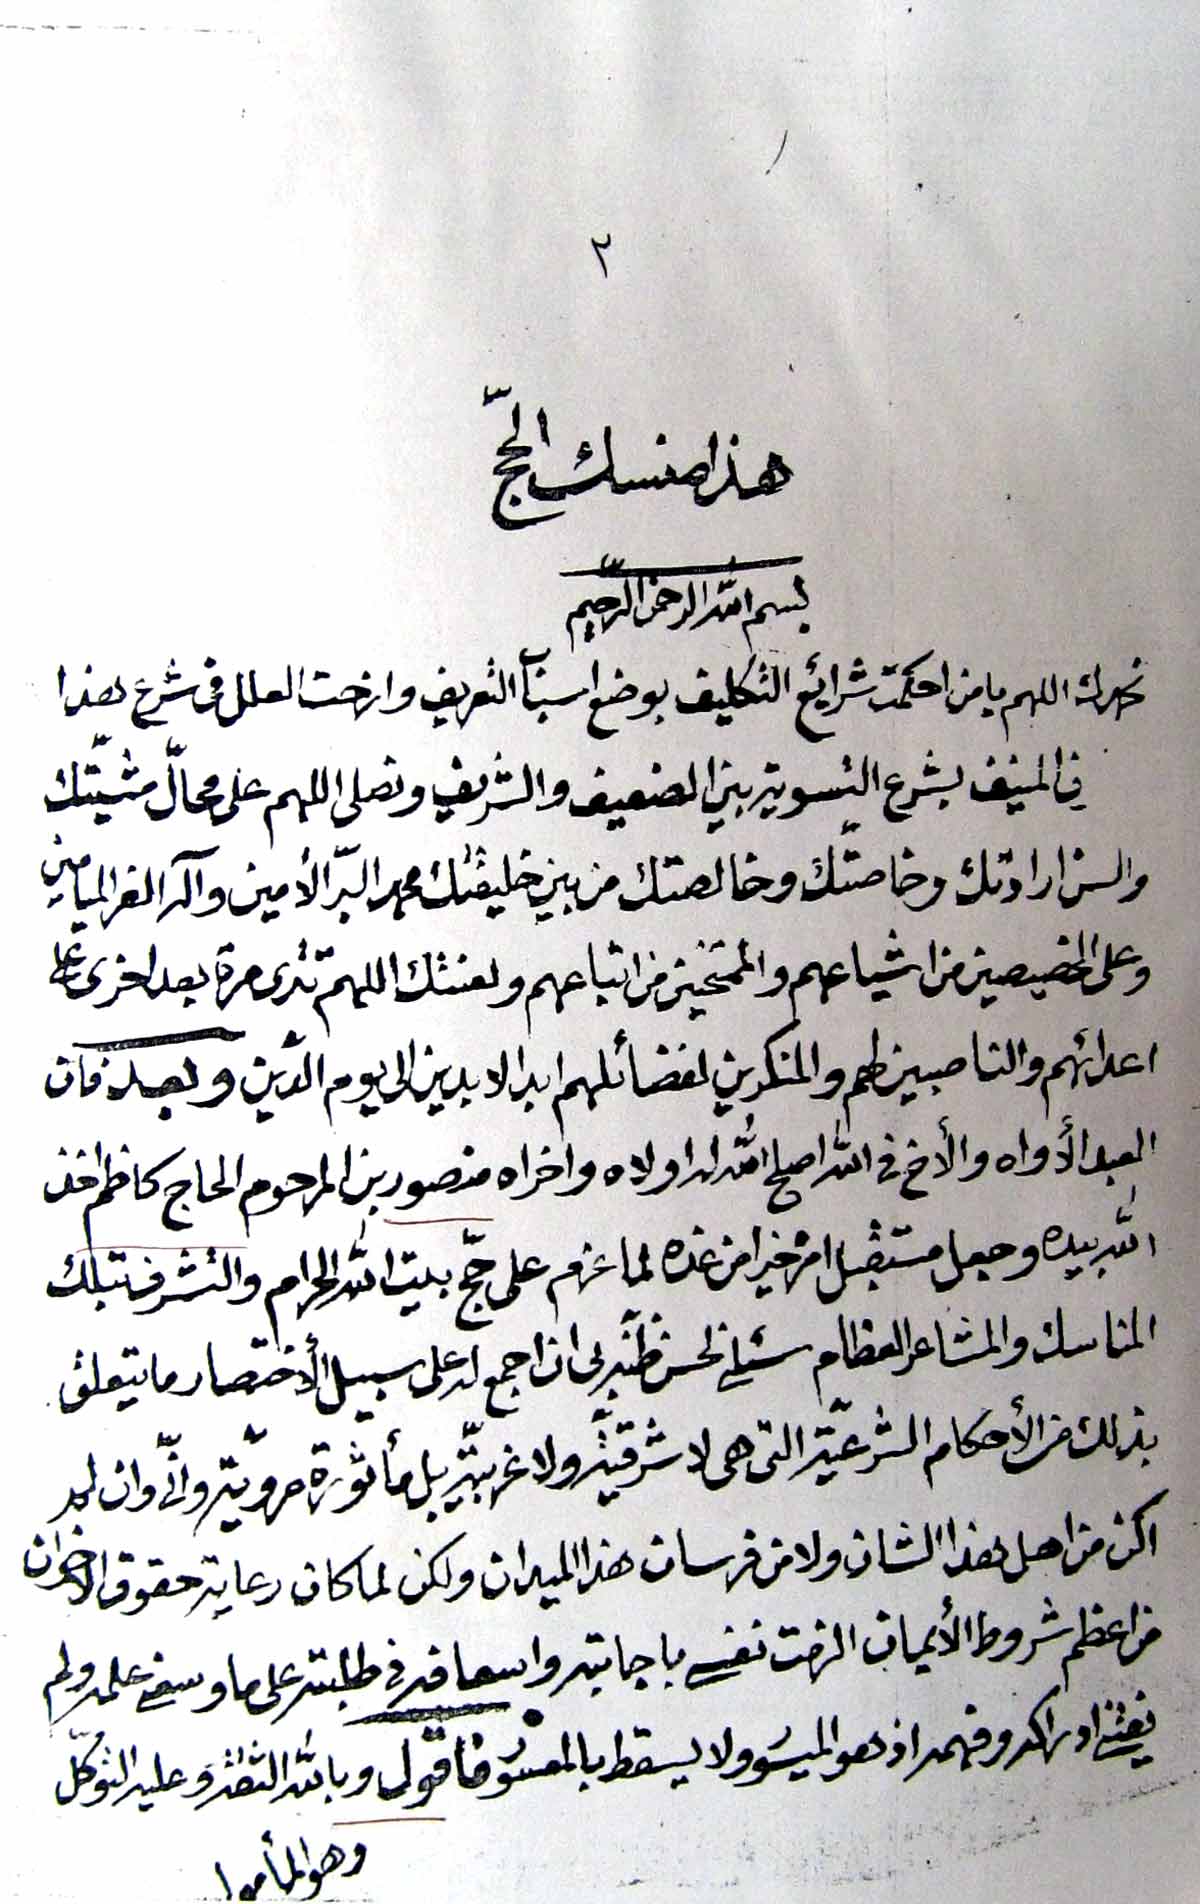 ٢
هذا منسك الحجّ
بسم الله الرحمن الرحيم
نحمدك اللهم يا من احكمت شرائع التكليف بوضع اسباب التعريف وازحت العلل في شرع هذا
في المنيف بشرع التسوية بين الضعيف والشريف ونصلي اللهم على محالّ مشيّتك
والسن ارادتك وخاصّتك وخالصتك من بين خليقتك محمد البرّ الأمين وآله الغر الميامين
وعلى الخصيصين من اشياعهم والممتحنين من اتباعهم ولعنتك اللهم تترى مرة بعد اخرى على
اعدائهم والناصبين لهم والمنكرين لفضائلهم ابد الابدين الى يوم الدّين وبعد فان
العبد الأواه والأخ في الله اصلح الله له اولاه واخراه منصور بن المرحوم الحاج كاظم اخذ
الله بيده وجعل مستقبل امره خيرا من غده لما عزم على حجّ بيت الله الحرام والتشرف بتلك
المناسك والمشاعر العظام سئلني لحسن ظنّه بي ان اجمع له على سبيل الأختصار ما يتعلق
بذلك من الأحكام الشرعيّة التي هي لا شرقيّة ولا غربيّة بل مأثورة مرويّة وانّي وان لم
اكن من اهل هذا الشان ولا من فرسان هذا الميدان ولكن لما كان رعاية حقوق الاخوان
من اعظم شروط الأيمان الزمت نفسي باجابته واسعافه في طلبته على ما وسعني علمه ولم
يفتني ادراكه وفهمه اذ هو الميسور ولا يسقط بالمعسور فاقول وبالله الثقة وعليه التوكّل
وهو المأمول